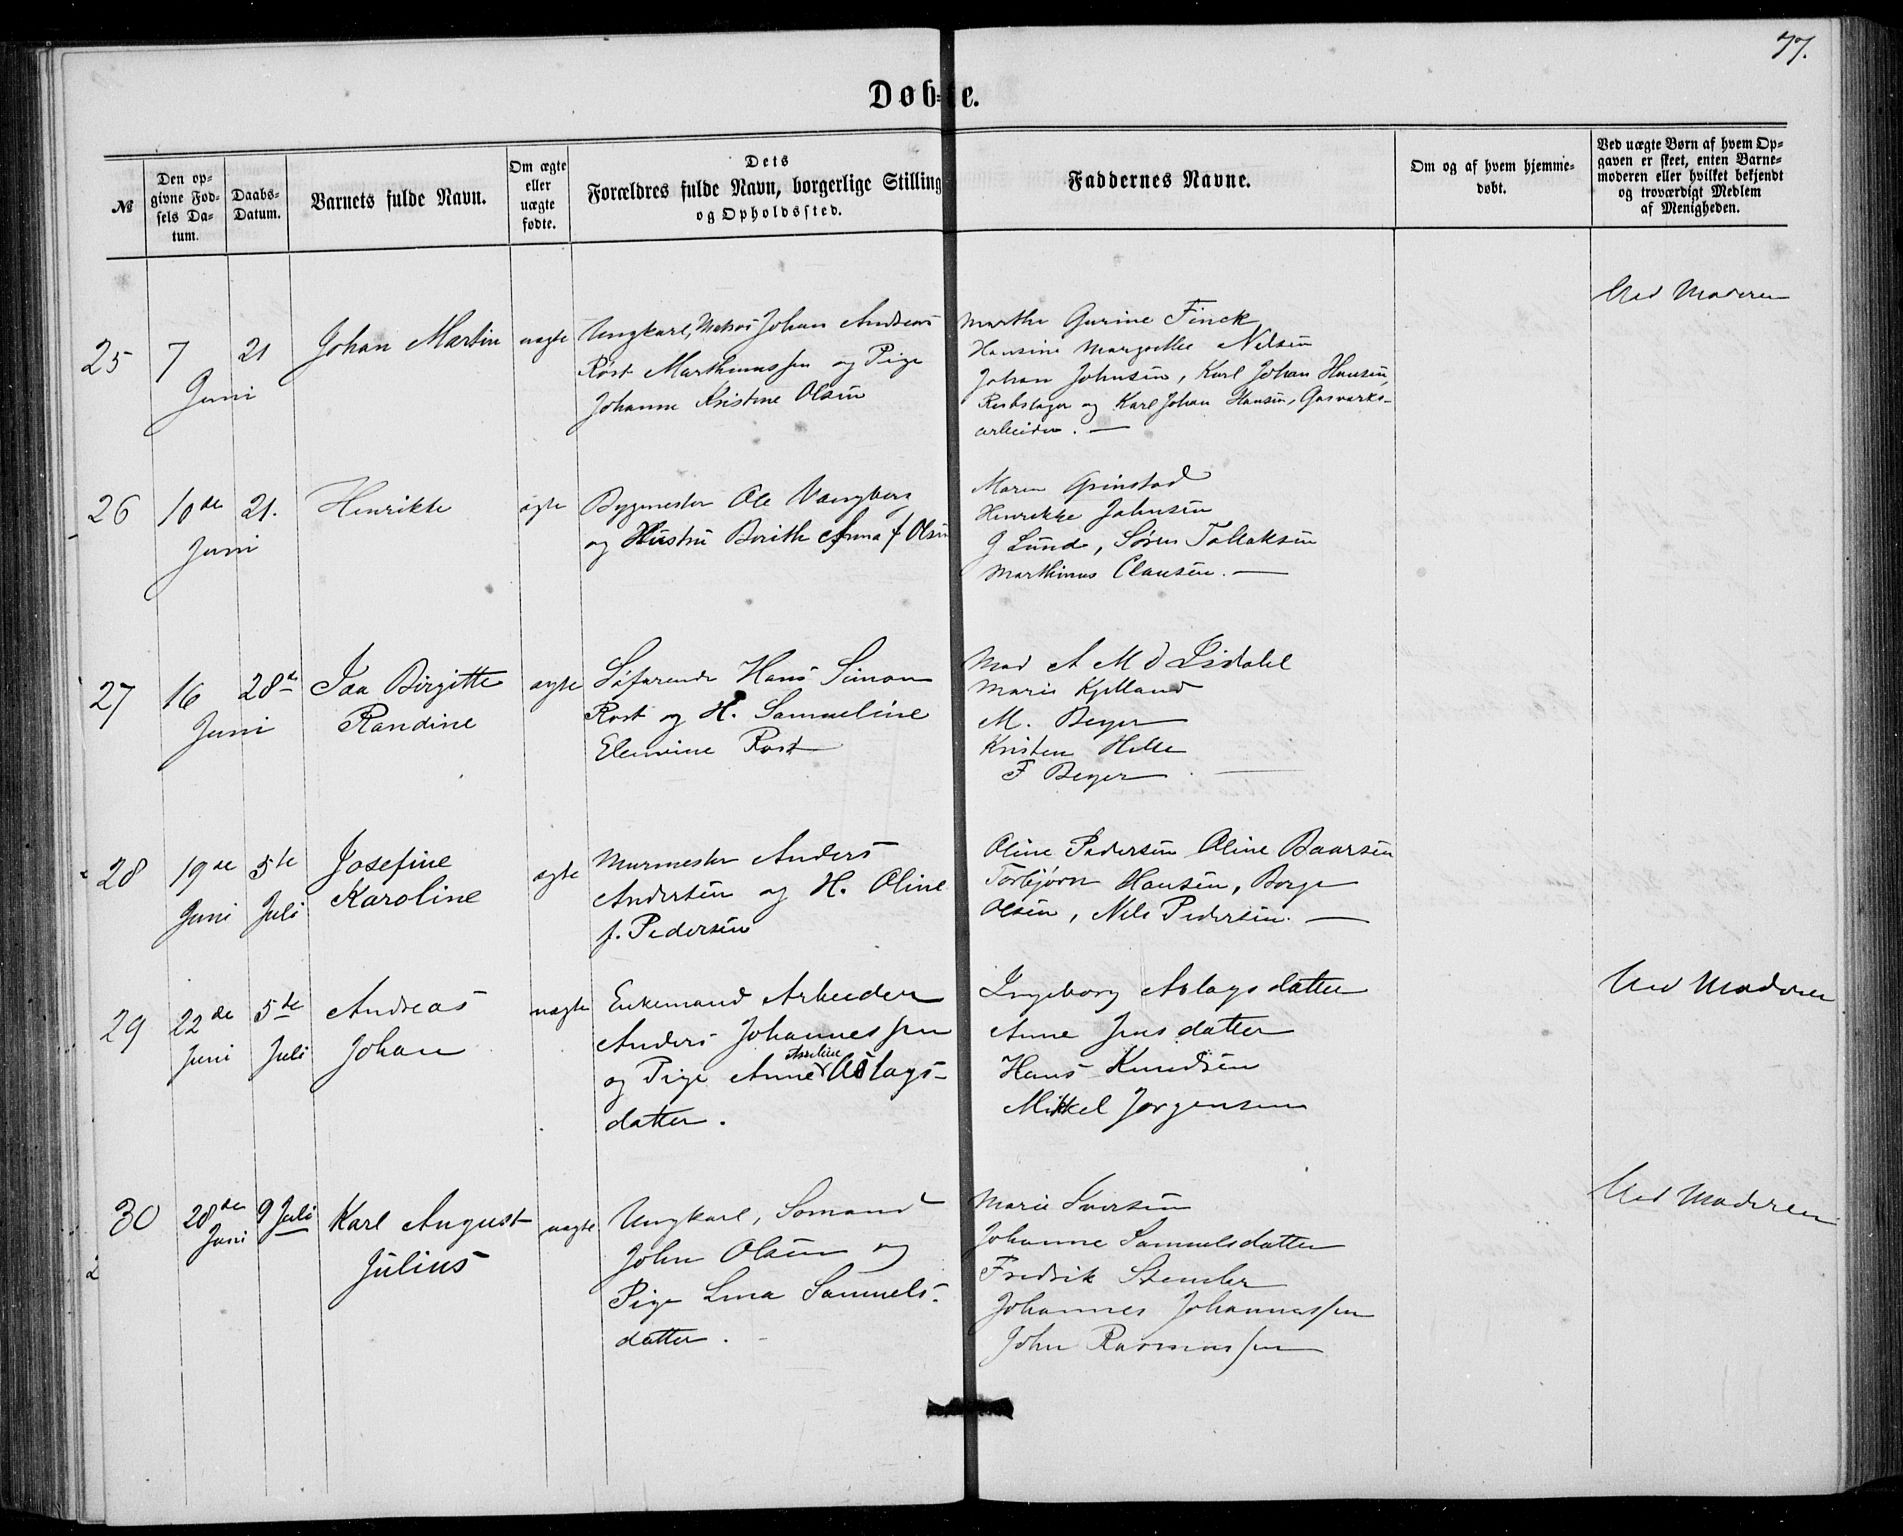 77.
Døb=te.
№
Den op-
givne Fød-
sels Da-
tum.
Daabs-
Datum.
Barnets fulde Navn.
Om ægte
eller
uægte
fødte.
Dets
Forældres fulde Navn, borgerlige Stilling
og Opholdssted.
Faddernes Navne.
Om og af hvem hjemme-
døbt.
Ved uægte Børn af hvem Op-
gaven er skeet, enten Barne-
moderen eller hvilket bekjendt
og troværdigt Medlem
af Menigheden.
25
7
Juni
21
Johan Martin
uægte
Ungkarl, Matros Johan Andreas
Rost Marthinussen og Pige
Johanne Kristine Olsen
Marthe Gurine Finck
Hansine Margrethe Nelsen
Johan Johnsen, Karl Johan Hansen,
Rebslager og Karl Johan Hansen, Gasværks-
arbeider. —
Ved Moderen
26
10de
Juni
21.
Henrikke
ægte
Bygmester Ole Vangberg
og Hustru Berithe Anna f Olsen
Maren Grinstad
Henrikke Johnsen
G Lunde, Søren Tallaksen
Marthinus Clausen. —
27
16
Juni
28de
Ida Birgitte
Randine
ægte
Søfarende Hans Simon
Rost og H. Samueline
Elenine Rost
Mad A M d Lidahl
Marie Kjelland
M. Beyer
Kristen Helle
F Beyer
28
19de
Juni
5te
Juli
Josefine
Karoline
ægte
Murmester Anders
Andersen og H. Oline
f. Pedersen
Oline Pedersen Oline Baarsen
Torbjørn Hansen, Børge
Olsen, Nils Pedersen. —
29
22de
Juni
5te
Juli
Andreas
Johan
uægte
Enkemand Arbeider
Anders Johannessen
og Pige Anne Asseline Aslags-
datter.
Ingeborg Aslagsdatter
Anne Jensdatter
Hans Knudsen
Mikkel Jørgensen
Ved Moderen
30
28de
Juni
9 Juli
Karl August
Julius
uægte
Ungkarl, Sømand
John Olsen og
Pige Lina Samuels-
datter. —
Marie Iversen
Johanne Samuelsdatter
Fredrik Stemler
Johannes Johannessen
John Rasmussen
Ved Moderen